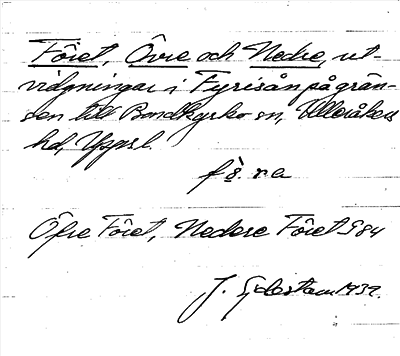 Föret, Övre och Nedre, ut-
vidgningar i Fyrisån på grän-
sen till Bondkyrko sn, Ulleråkers
hd, Uppsl.
fö̀.ra
Öfre Föret, Nedere Föret G84
J. Sjöberstam 1939.